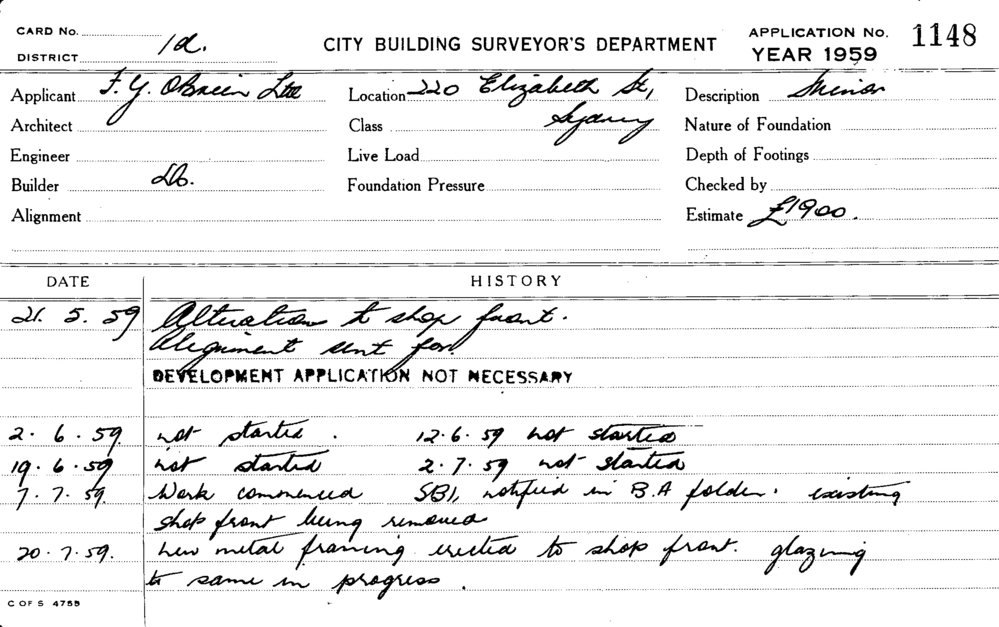 CARD No.
DISTRICT 1d.
CITY BUILDING SURVEYOR'S DEPARTMENT
APPLICATION No. 1148
YEAR 1959
Applicant F. Y. O'Brien Ltd Location 220 Elizabeth St, Description Minor
Architect Class Sydney Nature of Foundation
Engineer Live Load Depth of Footings
Builder Foundation Pressure Checked by
Alignment Estimate £1900.
DATE HISTORY
21. 5. 59 Alterations to shop front.
Alignment sent for.
DEVELOPMENT APPLICATION NOT NECESSARY
2. 6. 59. not started. 12.6.59 not started
19. 6. 59 not started 2.7.59 not started
7. 7. 59. Work commenced SBI, notified in B.A folder. existing
shop front being removed
20. 7. 59. New metal framing erected to shop front. glazing
to same in progress.
C OF S 4755